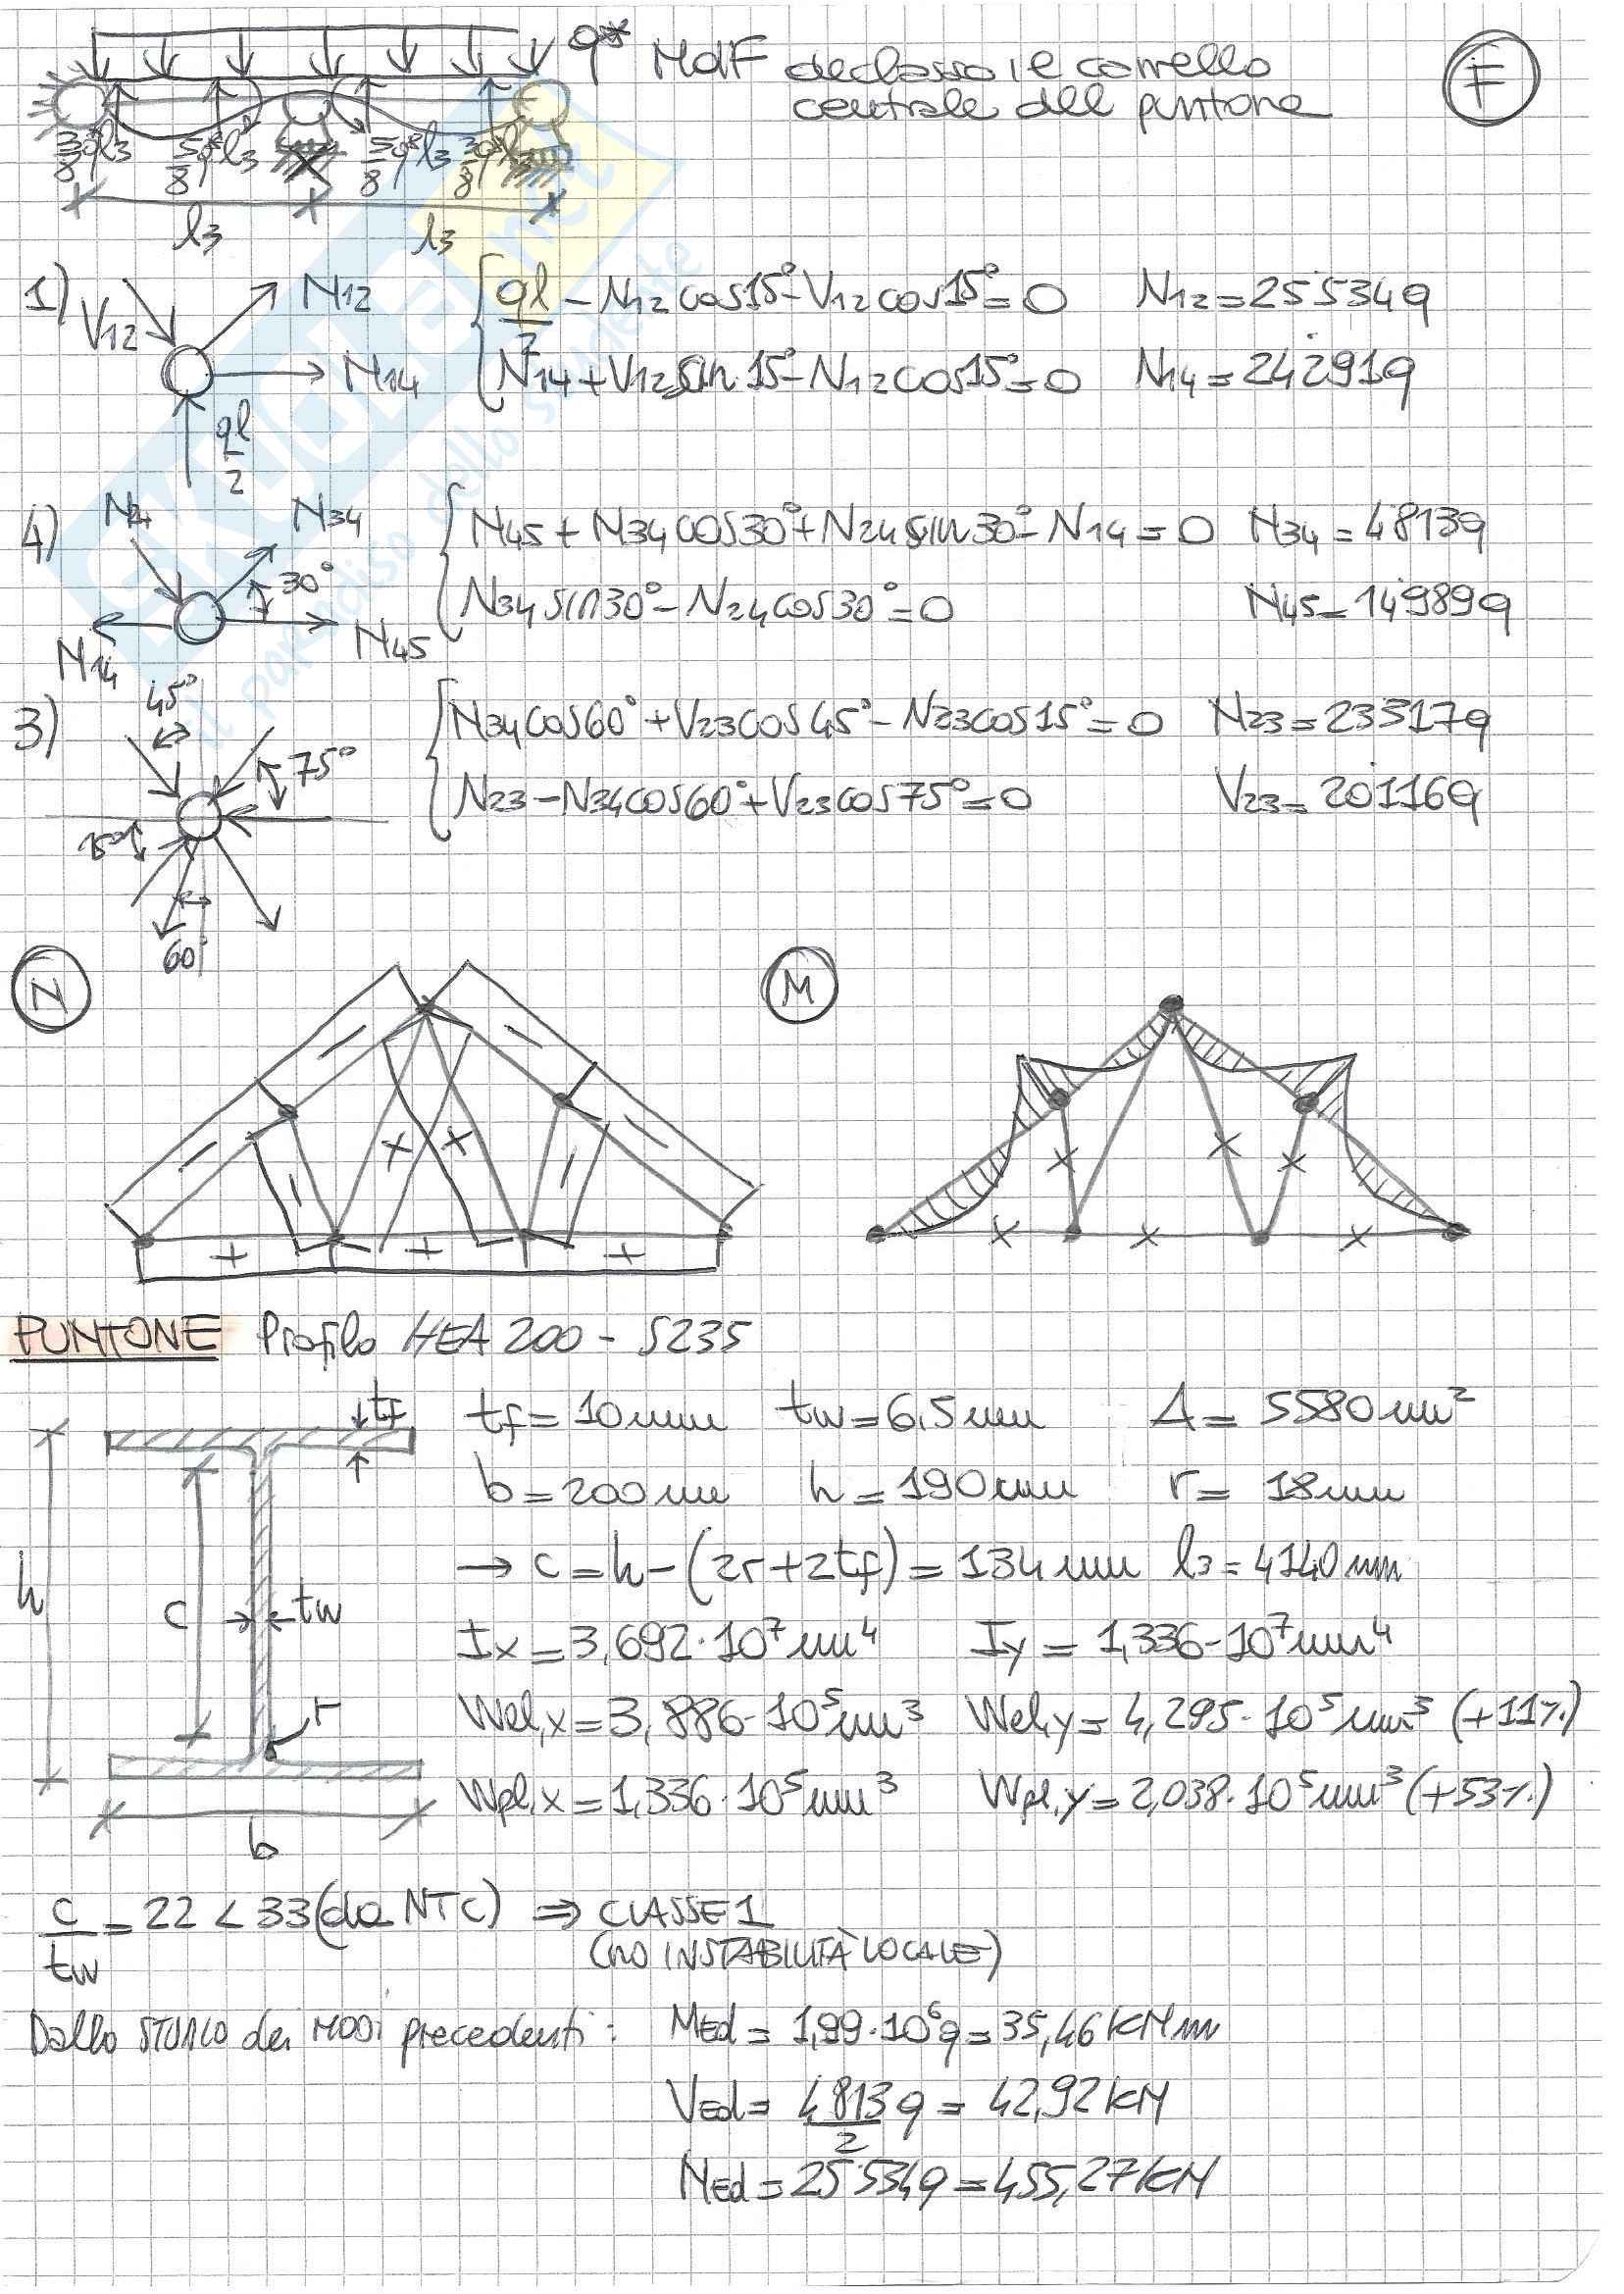 q* MdF declasso i e carrello
centrale dell puntone
F
3/8 q*l3 5/8 q*l3 5/8 q*l3 3/8 q*l3
l3 l3
1) V12 N12 { ql/2 - N12cos15° - V12cos15° = 0 N12 = 25534q
N14 { N14 + V12sin15° - N12cos15° = 0 N14 = 24291q
ql/2
4) N24 N34 { N45 + N34cos30° + N24sin30° - N14 = 0 N34 = 4813q
30° { N34sin30° - N24cos30° = 0 N45 = 14989q
N14 N45
3) 45° { N34cos60° + V23cos45° - N23cos15° = 0 N23 = 23317q
75° { N23 - N34cos60° + V23cos75° = 0 V23 = 20116q
15°
60°
N M
PUNTONE Profilo HEA 200 - S235
tf = 10mm tw = 6,5mm A = 5580mm²
b = 200mm h = 190mm r = 18mm
→ c = h - (2r + 2tf) = 134mm l3 = 4140mm
Ix = 3,692·10⁷mm⁴ Iy = 1,336·10⁷mm⁴
Wel,x = 3,886·10⁵mm³ Wel,y = 4,295·10⁵mm³ (+11%)
Wpl,x = 1,336·10⁵mm³ Wpl,y = 2,038·10⁵mm³ (+53%)
tf
h
c tw
r
b
c/tw = 22 < 33 (da NTC) ⇒ CLASSE 1
(NO INSTABILITÀ LOCALE)
Dallo STUDIO dei NODI precedenti: MEd = 1,99·10⁶q = 35,46kNm
VEd = 4813/2 q = 42,92kN
NEd = 25534q = 455,27kN